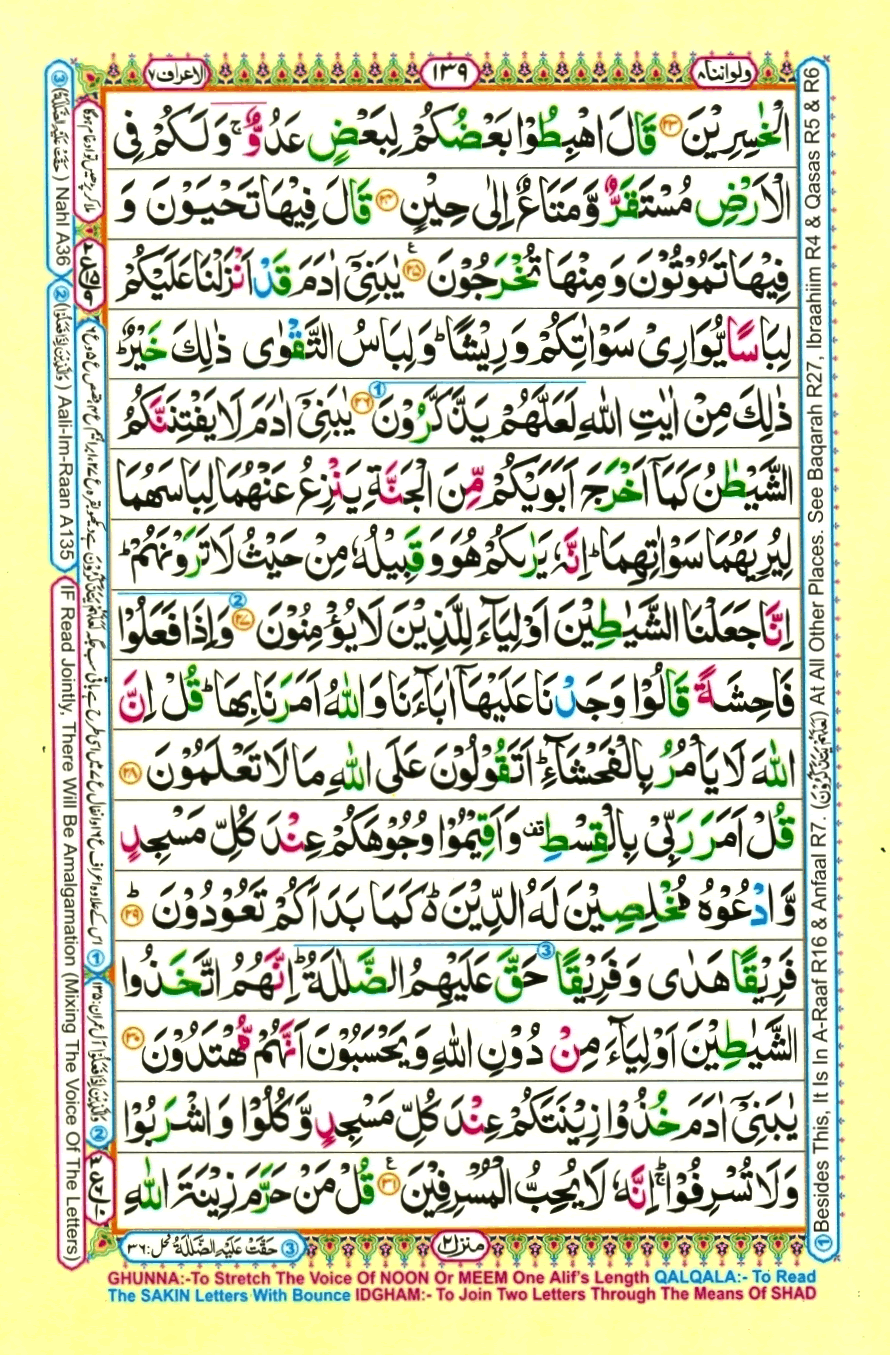 ولواننا ٨
١٣٩
الاعراف ٧
الْخٰسِرِيْنَ ۝٢٣ قَالَ اهْبِطُوْا بَعْضُكُمْ لِبَعْضٍ عَدُوٌّ ۚ وَ لَكُمْ فِى
الْاَرْضِ مُسْتَقَرٌّ وَّ مَتَاعٌ اِلٰى حِيْنٍ ۝٢٤ قَالَ فِيْهَا تَحْيَوْنَ وَ
فِيْهَا تَمُوْتُوْنَ وَ مِنْهَا تُخْرَجُوْنَ ۝٢٥ يٰبَنِىْٓ اٰدَمَ قَدْ اَنْزَلْنَا عَلَيْكُمْ
لِبَاسًا يُّوَارِىْ سَوْاٰتِكُمْ وَ رِيْشًا ؕ وَ لِبَاسُ التَّقْوٰى ذٰلِكَ خَيْرٌ ؕ
ذٰلِكَ مِنْ اٰيٰتِ اللّٰهِ لَعَلَّهُمْ يَذَّكَّرُوْنَ ①۝٢٦ يٰبَنِىْٓ اٰدَمَ لَا يَفْتِنَنَّكُمُ
الشَّيْطٰنُ كَمَآ اَخْرَجَ اَبَوَيْكُمْ مِّنَ الْجَنَّةِ يَنْزِعُ عَنْهُمَا لِبَاسَهُمَا
لِيُرِيَهُمَا سَوْاٰتِهِمَا ؕ اِنَّهٗ يَرٰىكُمْ هُوَ وَ قَبِيْلُهٗ مِنْ حَيْثُ لَا تَرَوْنَهُمْ ؕ
اِنَّا جَعَلْنَا الشَّيٰطِيْنَ اَوْلِيَآءَ لِلَّذِيْنَ لَا يُؤْمِنُوْنَ ②۝٢٧ وَ اِذَا فَعَلُوْا
فَاحِشَةً قَالُوْا وَجَدْنَا عَلَيْهَآ اٰبَآءَنَا وَ اللّٰهُ اَمَرَنَا بِهَا ؕ قُلْ اِنَّ
اللّٰهَ لَا يَاْمُرُ بِالْفَحْشَآءِ ؕ اَتَقُوْلُوْنَ عَلَى اللّٰهِ مَا لَا تَعْلَمُوْنَ ۝٢٨
قُلْ اَمَرَ رَبِّىْ بِالْقِسْطِ قف وَ اَقِيْمُوْا وُجُوْهَكُمْ عِنْدَ كُلِّ مَسْجِدٍ
وَّ ادْعُوْهُ مُخْلِصِيْنَ لَهُ الدِّيْنَ ؕ۬ كَمَا بَدَاَكُمْ تَعُوْدُوْنَ ؕ۝٢٩
فَرِيْقًا هَدٰى وَ فَرِيْقًا حَقَّ ③ عَلَيْهِمُ الضَّلٰلَةُ ؕ اِنَّهُمُ اتَّخَذُوا
الشَّيٰطِيْنَ اَوْلِيَآءَ مِنْ دُوْنِ اللّٰهِ وَ يَحْسَبُوْنَ اَنَّهُمْ مُّهْتَدُوْنَ ۝٣٠
يٰبَنِىْٓ اٰدَمَ خُذُوْا زِيْنَتَكُمْ عِنْدَ كُلِّ مَسْجِدٍ وَّ كُلُوْا وَ اشْرَبُوْا
وَ لَا تُسْرِفُوْا ۚ اِنَّهٗ لَا يُحِبُّ الْمُسْرِفِيْنَ ۝٣١ قُلْ مَنْ حَرَّمَ زِيْنَةَ اللّٰهِ
منزل ٢
③ حَقَّتْ عَلَيْهِ الضَّلٰلَةُ نحل: ٣٦
① Besides This, It Is In A-Raaf R16 & Anfaal R7. (لَعَلَّهُمْ يَتَذَكَّرُوْنَ) At All Other Places. See Baqarah R27, Ibraahiim R4 & Qasas R5 & R6
③ (حَقَّتْ عَلَيْهِ الضَّلٰلَةُ) Nahl A36
② (وَالَّذِيْنَ اِذَا فَعَلُوْا) Aali-Im-Raan A135
IF Read Jointly, There Will Be Amalgamation (Mixing The Voice Of The Letters)
② وَالَّذِيْنَ اِذَا فَعَلُوْا آل عمران: ١٣٥
GHUNNA:-To Stretch The Voice Of NOON Or MEEM One Alif's Length QALQALA:- To Read
The SAKIN Letters With Bounce IDGHAM:- To Join Two Letters Through The Means Of SHAD